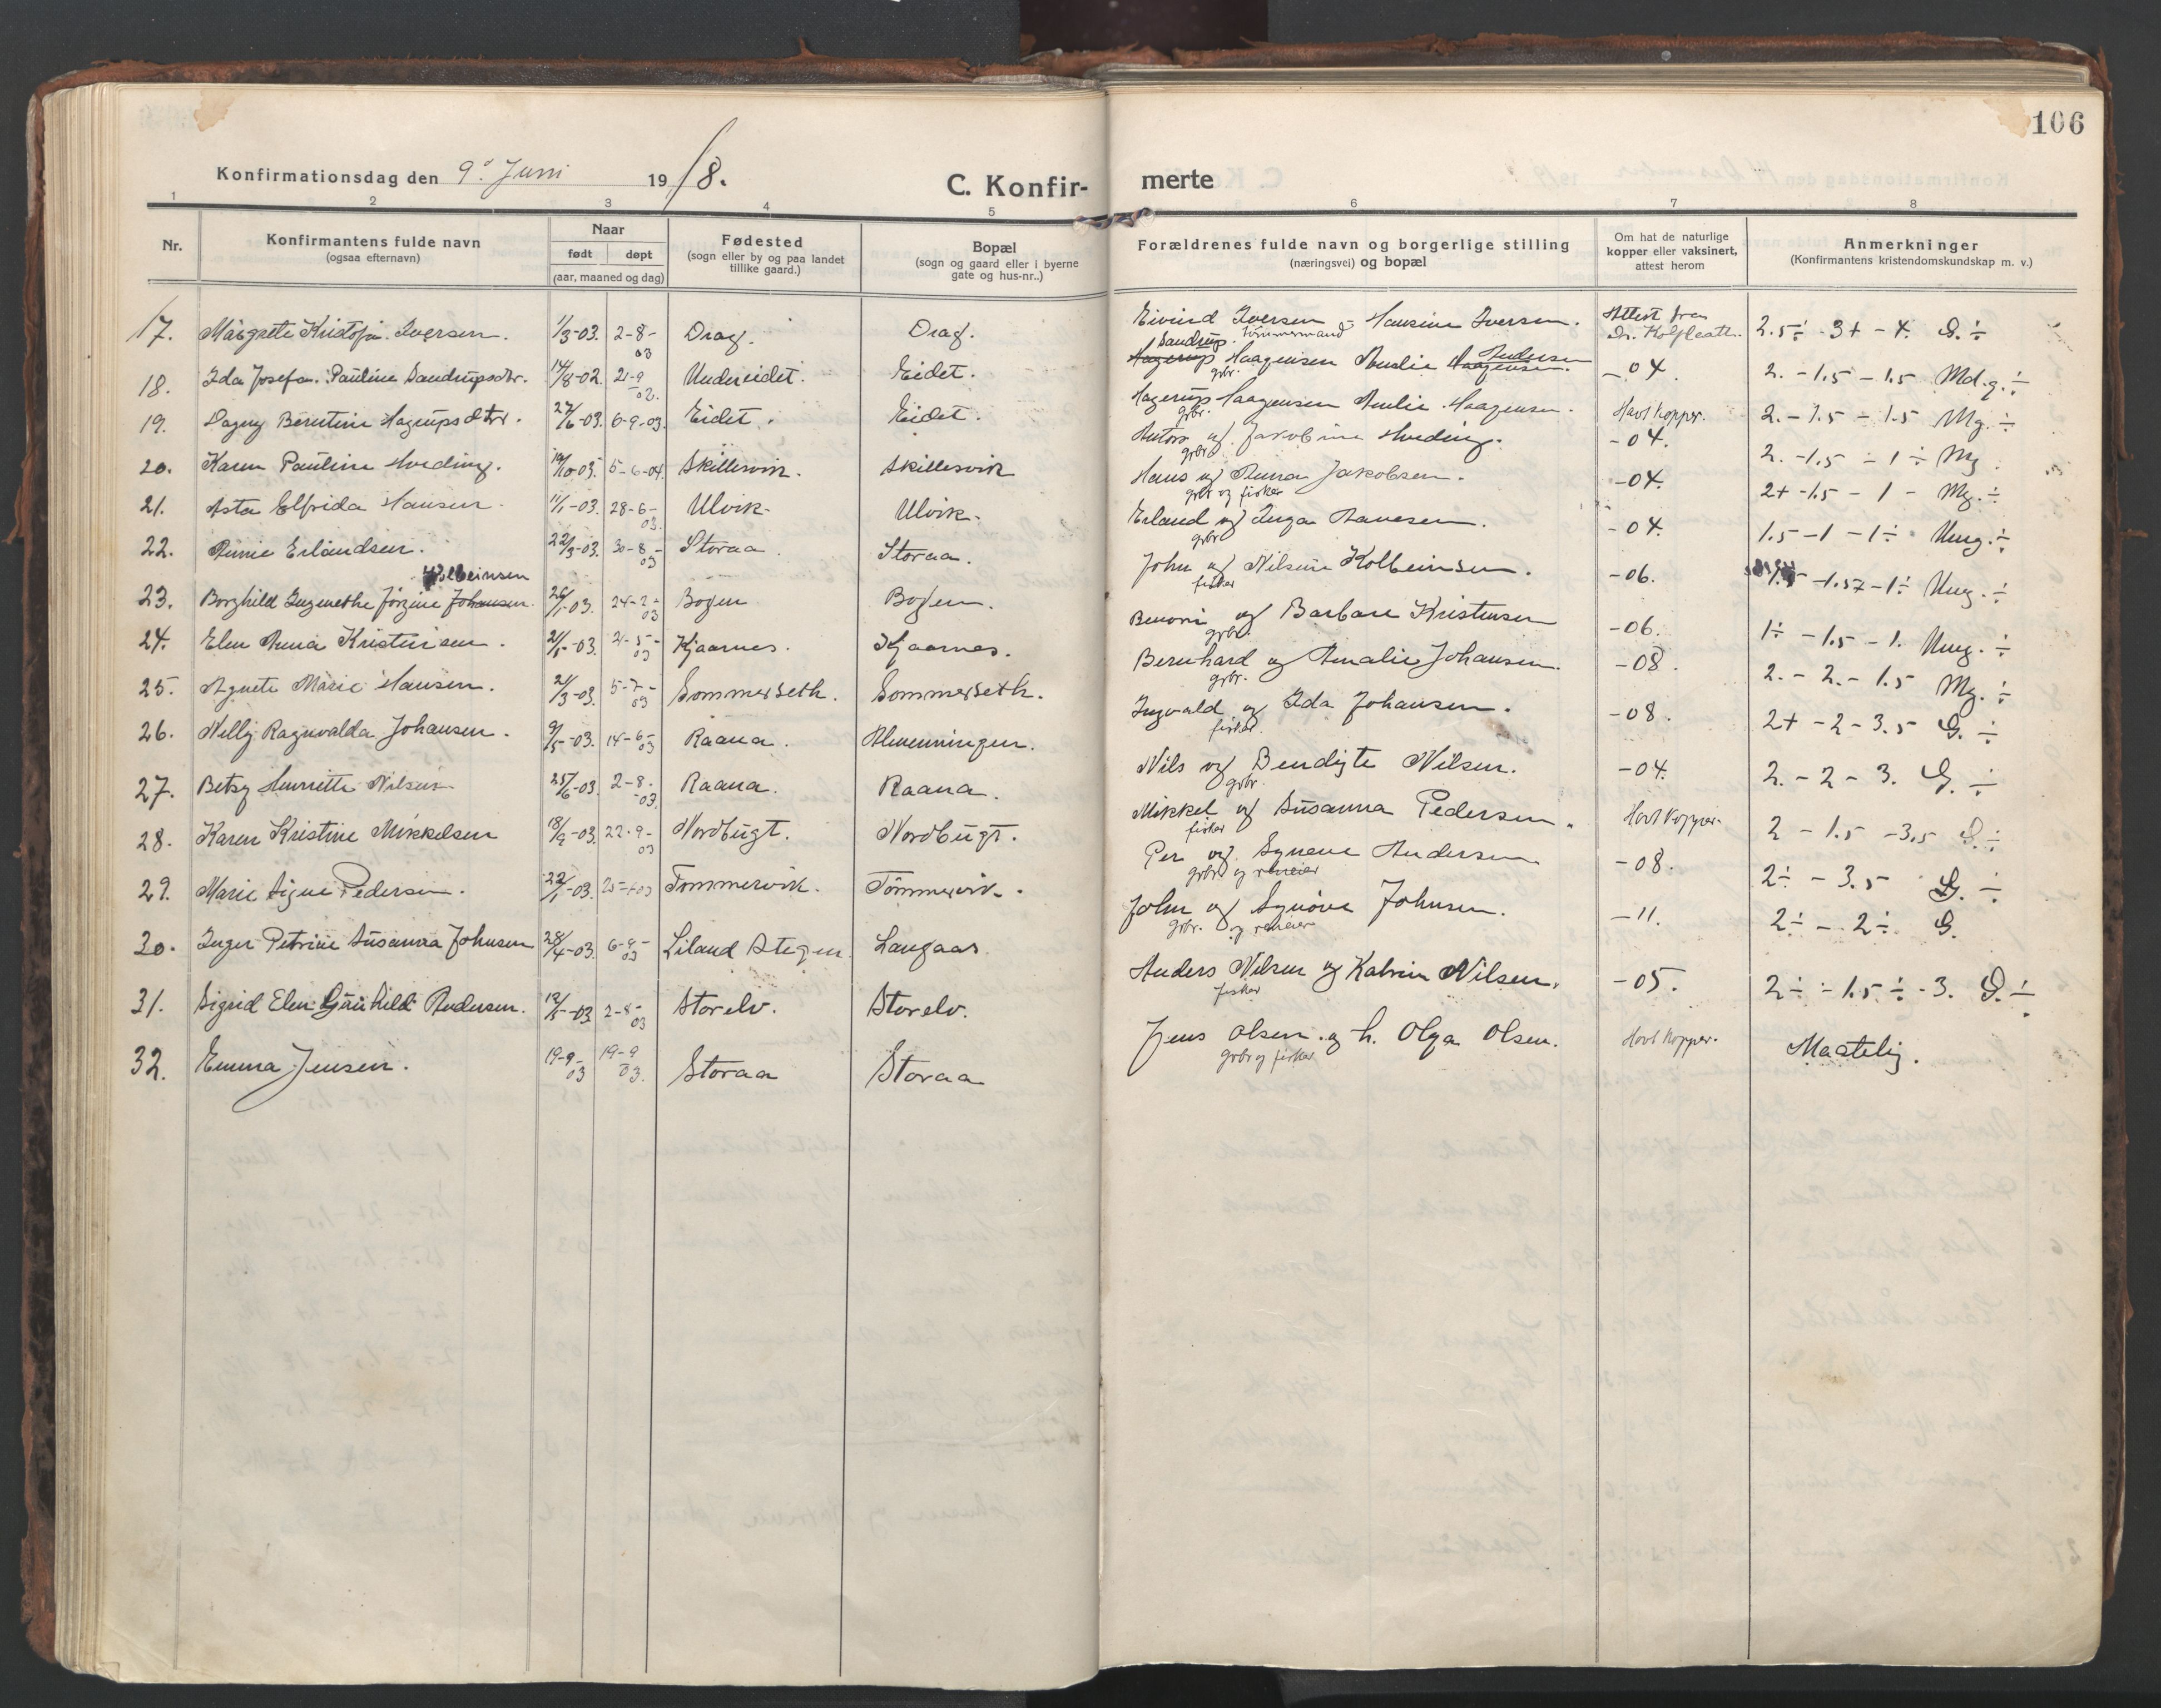 106
Konfirmationsdag den 9d Juni 1918.
C. Konfir- merte
1 2 3 4 5 6 7 8
Nr.
Konfirmantens fulde navn (ogsaa efternavn)
Naar født døpt (aar, maaned og dag)
Fødested (sogn eller by og paa landet tillike gaard.)
Bopæl (sogn og gaard eller i byerne gate og hus-nr..)
Forældrenes fulde navn og borgerlige stilling (næringsvei) og bopæl
Om hat de naturlige kopper eller vaksinert, attest herom
Anmerkninger (Konfirmantens kristendomskundskap m. v.)
17. Margrete Kristofa Iversen. 1/3-03. 2-8-03 Drag. Drag. Eivind Iversen - Hansine Iversen. Tömmermand Attest fra Dr. 2.5÷ -3+ -4. G. ÷
18. Ida Josefa Pauline Sandrupsdtr. 14/8-02. 21-9-02. Undereidet. Eidet. Sandrup Hagerup Haagensen Amalie Haagensen Andersen grbr. -04. 2. -1.5 -1.5 Md.g. ÷
19. Dagny Berntine Hagrupsdtr. 27/6-03. 6-9-03. Eidet. Eidet. Hagerup Haagensen Amlie Haagensen. grbr. Havt kopper. 2. -1.5 -1.5 Mg. ÷
20. Karen Pauline Hveding. 19/10-03. 5-6-04. Skillesvik. Skillesvik Anton og Jakobine Hveding. grbr -04. 2. -1.5 -1÷ Mg.
21. Asta Elfrida Hansen. 11/1-03. 28-6-03. Ulvik- Ulvik- Hans og Anna Jakobsen. grbr og fisker -04. 2+ -1.5 -1 - Mg. ÷
22. Annie Erlandsen. 22/3-03. 30-8-03 Storaa. Storaa. Erland og Inga Hansen. grbr -04. 1.5 -1 -1÷ Umg. ÷
23. Borghild Ingenethe Jörgine Johansen. Kolbeinsen 26/1-03. 24-2-03 Bogen Bogen. John og Nilsine Kolbeinsen. fisker -06. 1.5 -1.5+ -1÷ Umg. ÷
24. Elen Anna Kristensen. 21/1-03. 21-5-03 Kjaarnes. Kjaarnes. Benoni og Barbara Kristensen grbr. -06. 1÷ -1.5 -1. Umg. ÷
25. Agnete Marie Hansen. 21/3-03. 5-7-03 Sommerseth. Sommerseth. Bernhard og Amalie Johansen. grbr. -08. 2. - 2. - 1.5 Mg. ÷
26. Nelly Ragnvalda Johansen. 9/5-03. 14-6-03 Raana. Almenningen. Ingvald og Ida Johansen. fisker. -08. 2+ -2 -3.5 G. ÷
27. Betzy Henriette Nilsen 25/6-03. 2-8-03. Raana. Raana. Nils og Bendigte Nilsen. grbr. -04. 2. -2 -3. G. ÷
28. Karen Kristine Mikkelsen 18/2-03. 22-9-03 Nordbugt. Nordbugt. Mikkel og Susanna Pedersen. fisker Havt Kopper. 2 -1.5 -3.5 G. ÷
29. Marie Signe Pedersen. 22/1-03. Tommervik. Tommervik. Per og Synene Andersen grbr og reneier -08. 2÷ -3.5 G. ÷
30. Inger Petrine Susanna Johnsen 28/4-03. 6-9-03 Liland Stegen Langaas John og Synöve Johnsen. grbr. og reneier -11. 2÷ - 2÷ G.
31. Sigrid Elen Gunhild Andersen. 12/5-03. 2-8-03 Storelv. Storelv. Anders Nilsen og Katrine Nilsen. fisker -05. 2÷ -1.5÷ -3. G. ÷
32. Emma Jensen. 19-9-03 19-9-03. Storaa Storaa Jens Olsen og h. Olga Olsen. grbr og fisker Havt kopper. Maatelig.